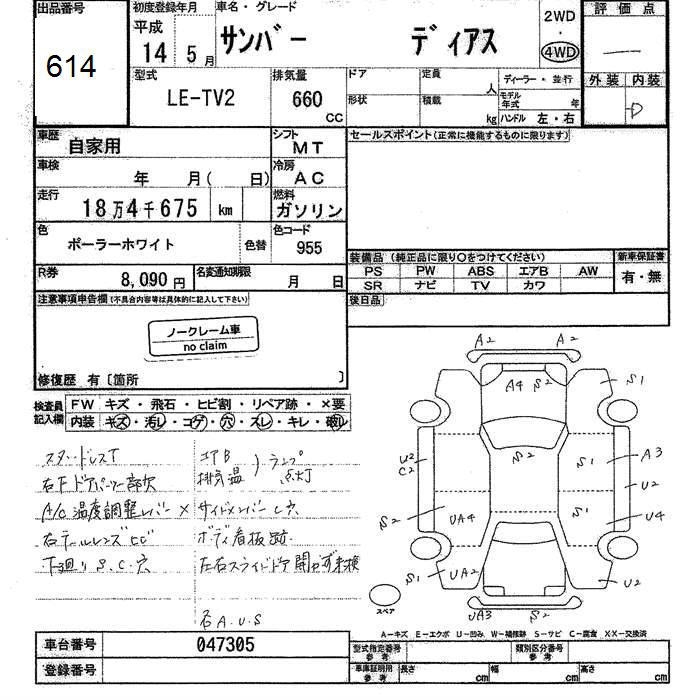 出品番号 初度登録年月 車名・グレード 評価点
614
平成14年5月 サンバー ディアス 2WD・4WD
型式 LE-TV2
排気量 660 CC
ドア 定員 人 ディーラー・並行
形状 積載 kg モデル年式 年 ハンドル 左・右
外装 内装
D
車歴 自家用 シフト MT
セールスポイント(正常に機能するものに限ります)
車検 年 月( 日) 冷房 AC
走行 18万4千675 km 燃料 ガソリン
色 ポーラーホワイト 色替 色コード 955
装備品 (純正品に限り〇をつけてください) 新車保証書
PS PW ABS エアB AW 有・無
SR ナビ TV カワ
R券 8,090円 名変通知期限 月 日
後日品
注意事項申告欄(不具合内容等は具体的に記入して下さい)
ノークレーム車
no claim
修復歴 有〔箇所 〕
検査員記入欄 FW キズ・飛石・ヒビ割・リペア跡・×要
内装 キズ・汚レ・コゲ・穴・スレ・キレ・破レ
スタッドレスT エアB
右Fドアバイザー部欠 排気温 ランプ点灯
A/C 温度調整レバー× サイドメンバーし穴
右テールレンズヒビ ボディ看板跡
下廻りS.C.穴 左右スライドドア開かず未検
右A.U.S
A2 A2
A4 S2 S1
U2 C2 S2 S1 A3
U2
S2 UA4 S1 U4
S1 UA2 U2
スペア UA3 S2
A-キズ E-エクボ U-凹み W-補修跡 S-サビ C-腐食 XX-交換済
車台番号 047305
型式指定番号 参考 類別区分番号 参考
登録番号
車庫証明用 参考 長さ cm 幅 cm 高さ cm